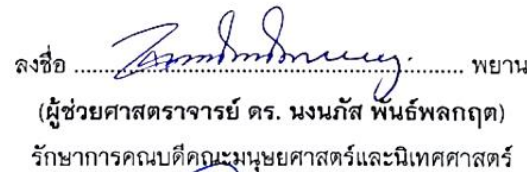 ลงชื่อ ........................ พยาน
(ผู้ช่วยศาสตราจารย์ ดร. นงนภัส พันธ์พลกฤต)
รักษาการคณบดีคณะมนุษยศาสตร์และนิเทศศาสตร์